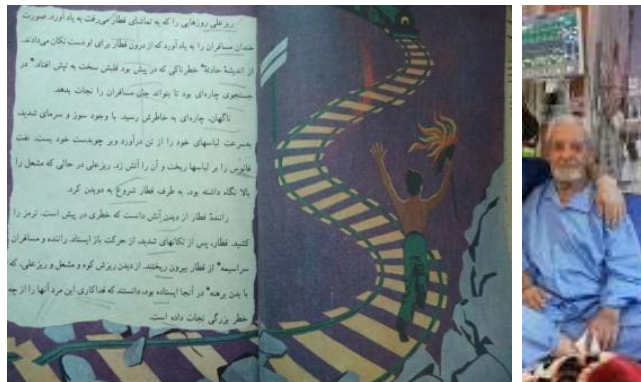 ریزعلی روزهایی را که به تماشای قطار می‌رفت به یاد آورد. صورت
خندان مسافران را به یاد آورد که از درون قطار برای او دست تکان می‌دادند.
از اندیشهٔ حادثهٔ* خطرناکی که در پیش بود قلبش سخت به تپش افتاد.* در
جستجوی چاره‌ای بود تا بتواند جان مسافران را نجات بدهد.
ناگهان، چاره‌ای به خاطرش رسید. با وجود سوز و سرمای شدید،
به‌سرعت لباسهای خود را از تن درآورد و بر چوبدست خود بست. نفت
فانوس را بر لباسها ریخت و آن را آتش زد. ریزعلی در حالی که مشعل را
بالا نگاه داشته بود، به طرف قطار شروع به دویدن کرد.
رانندهٔ قطار از دیدن آتش دانست که خطری در پیش است. ترمز را
کشید. قطار، پس از تکانهای شدید، از حرکت باز ایستاد. راننده و مسافران
سراسیمه* از قطار بیرون ریختند. از دیدن ریزش کوه و مشعل و ریزعلی، که
با بدن برهنه* در آنجا ایستاده بود، دانستند که فداکاری این مرد آنها را از چه
خطر بزرگی نجات داده است.